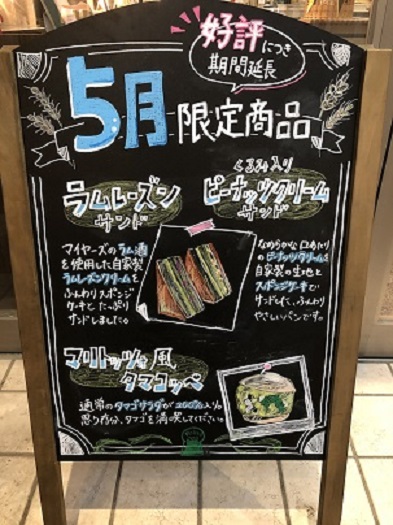 好評につき
期間延長
5月限定商品
ラムレーズン
サンド
マイヤーズのラム酒
を使用した自家製
ラムレーズンクリームを
ふんわりスポンジ
ケーキでたっぷり
サンドしました。
くるみ入り
ピーナッツクリーム
サンド
なめらかな口あたり
のピーナッツクリームを
自家製の生地と
スポンジケーキで
サンドして、ふんわり
やさしいパンです。
マリトッツォ風
タマコッペ
通常のタマゴサラダが200%入り。
思う存分、タマゴを満喫してください。